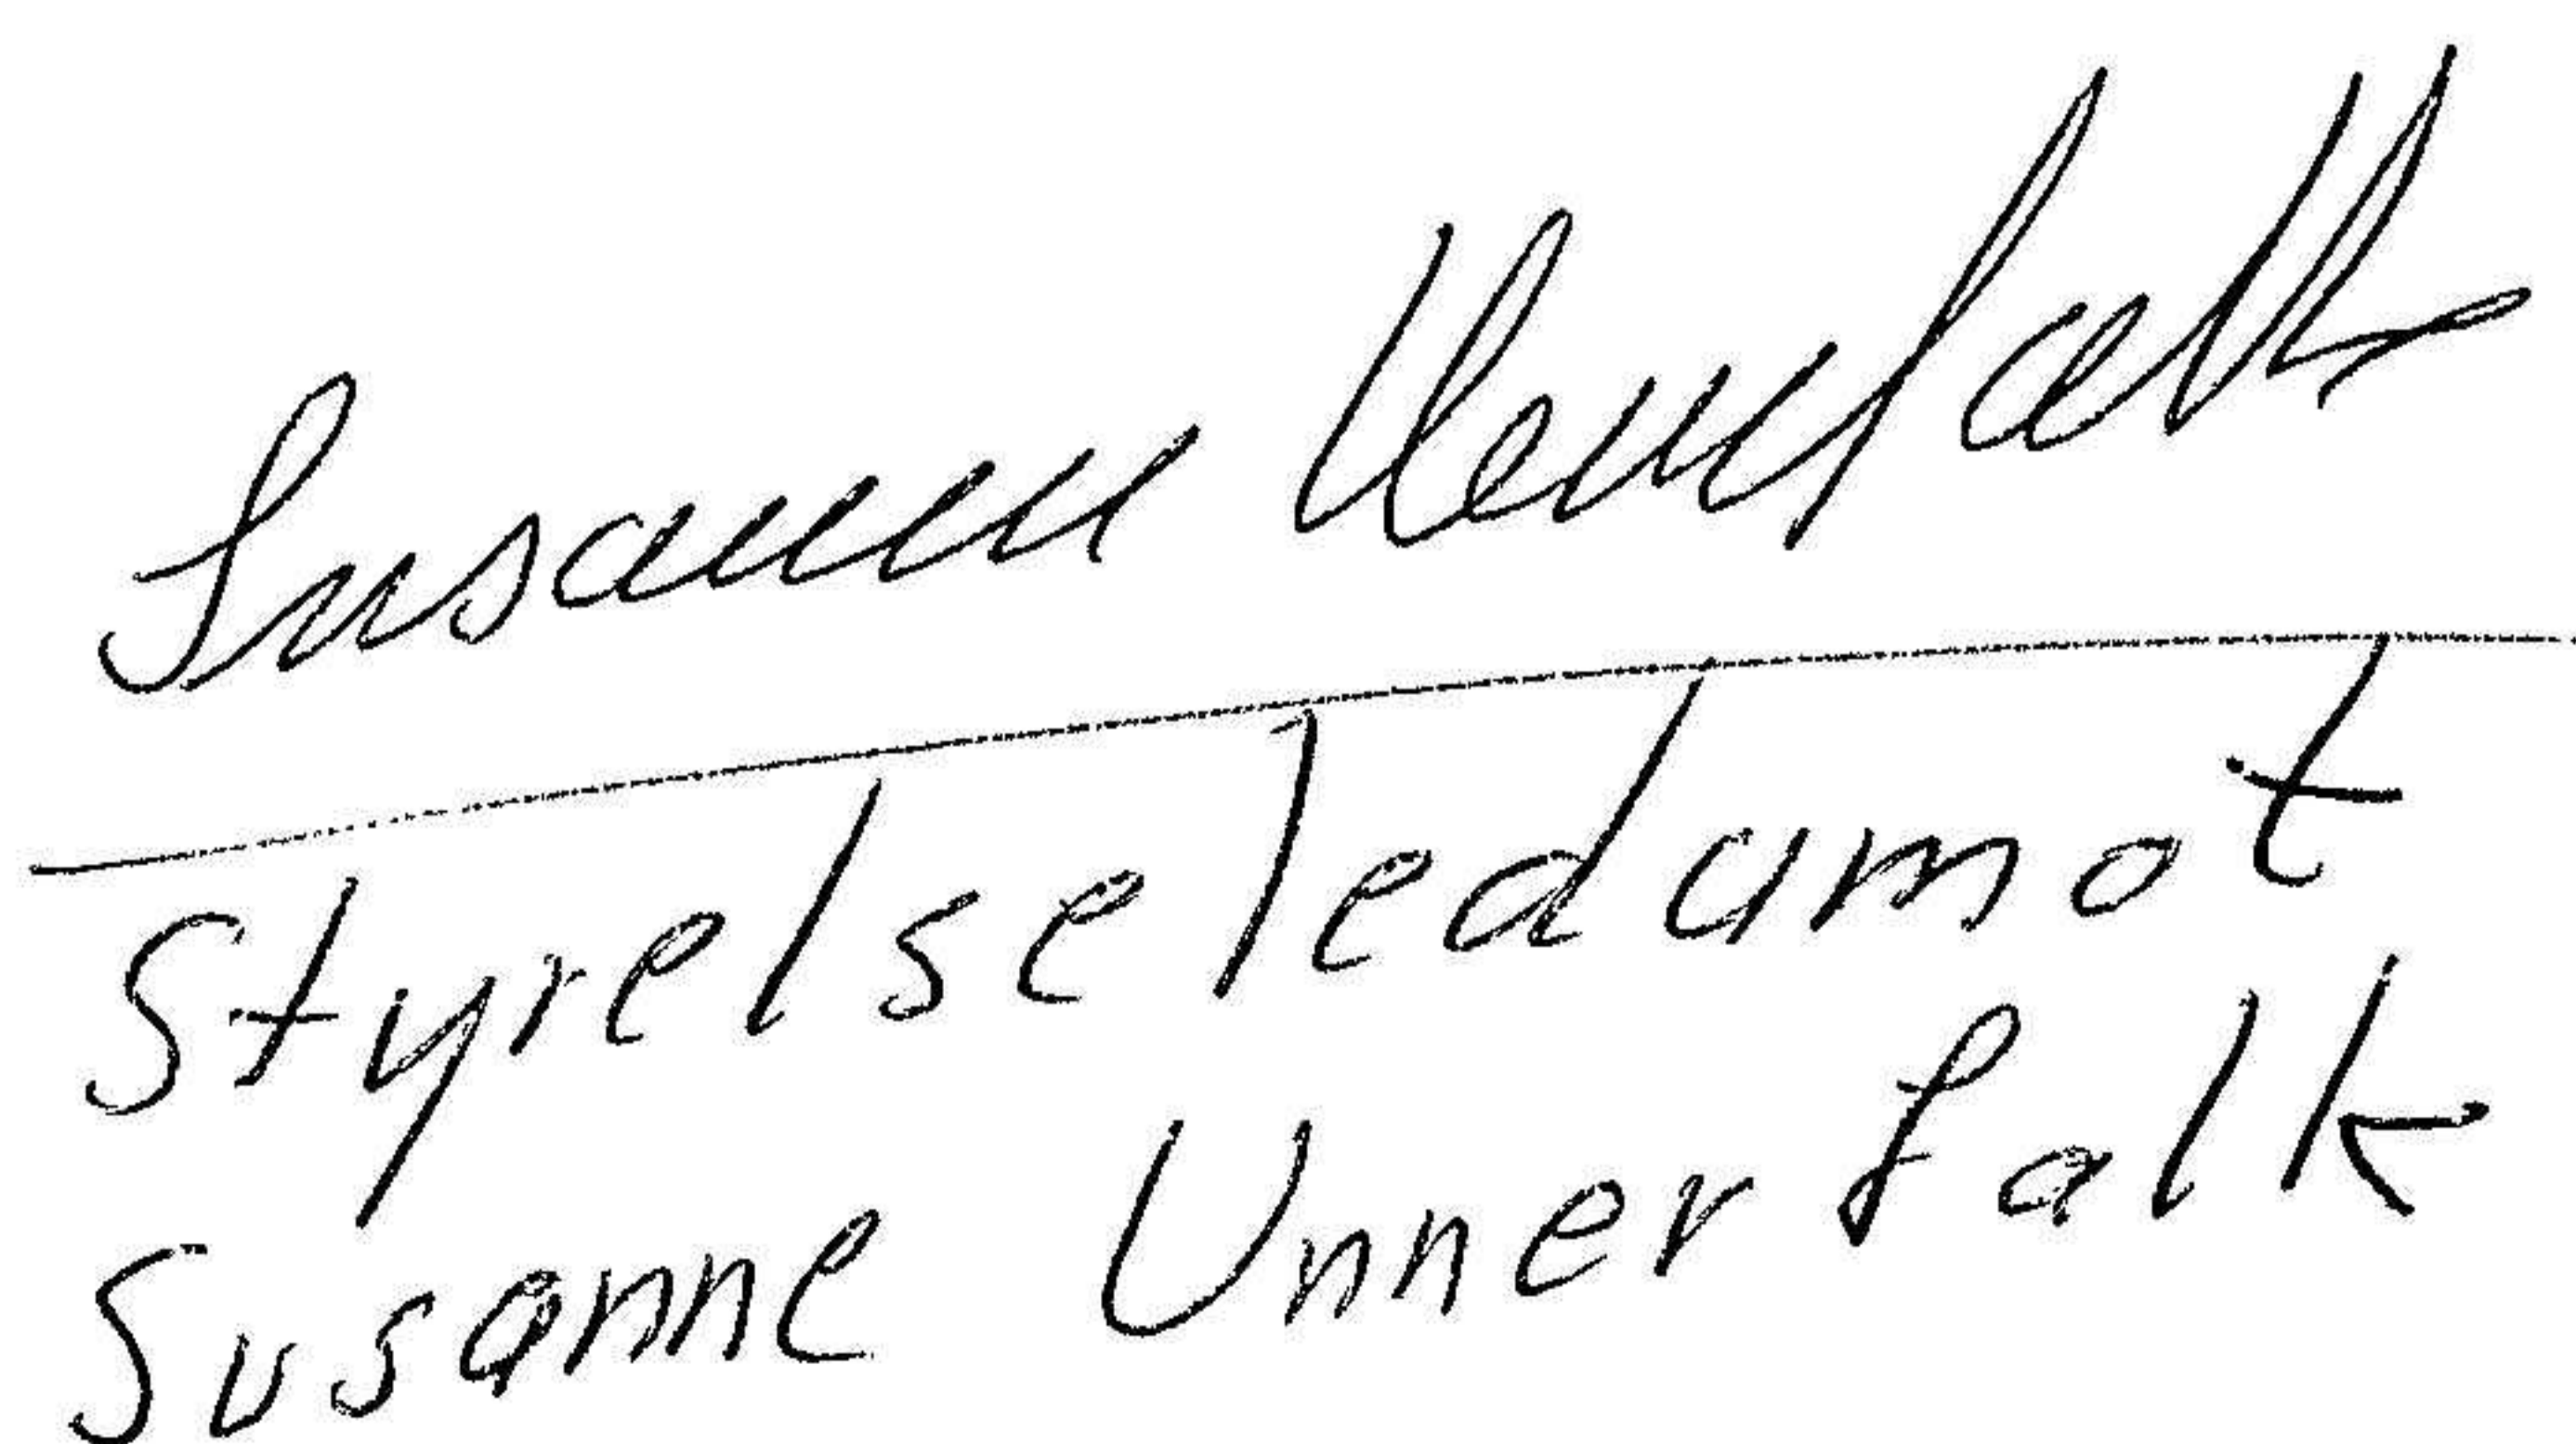 Susanne Unnerfalk
Styrelseledamot
Susanne Unnerfalk